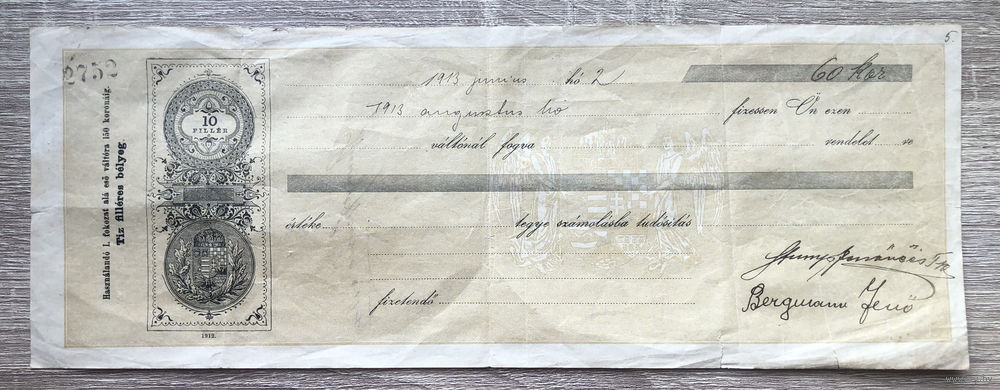 5.
2752
Használandó I. fokozat alá eső váltóra 150 koronáig.
Tiz filléres bélyeg
10
FILLÉR
1912.
1913 junius hó 2
60 kor
1913 augustus hó
fizessen Ön ezen
váltónál fogva
rendelet re
értéke
tegye számolásba tudósítás
fizetendő
Bergmann Jenő